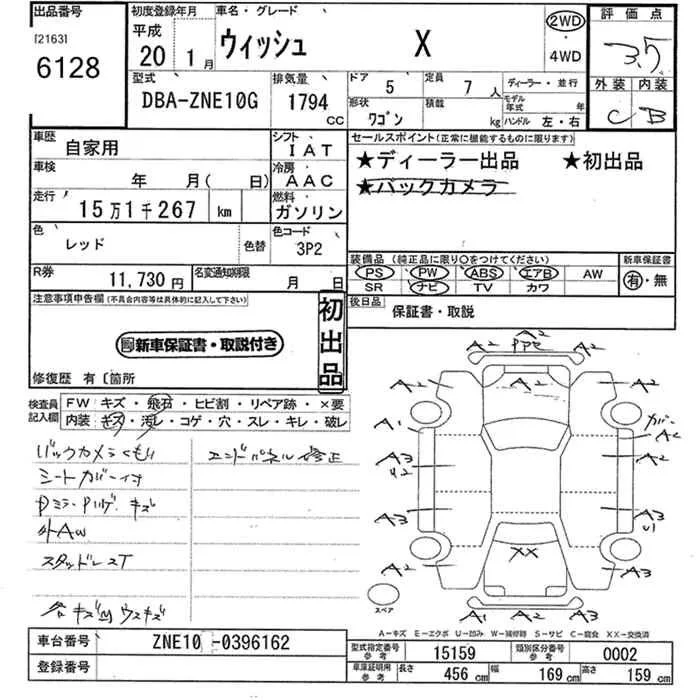 出品番号 初度登録年月 車名・グレード 2WD 評価点
[2163] 平成
6128 20 1月 ウィッシュ X ・ 3.5
4WD
型式 排気量 ドア 定員 ディーラー・並行 外装 内装
DBA-ZNE10G 1794 CC 5 7人 モデル年式 年 C B
形状 ワゴン 積載 kg ハンドル 左・右
車歴 自家用 シフト IAT セールスポイント(正常に機能するものに限ります)
車検 年 月( 日) 冷房 AAC ★ディーラー出品 ★初出品
走行 15万1千267 km 燃料 ガソリン ★バックカメラ
色 レッド 色替 色コード 3P2
装備品(純正品に限り○をつけてください) 新車保証書
R券 11,730円 名変通知期限 月 日 PS PW ABS エアB AW 有・無
SR ナビ TV カワ
注意事項申告欄(不具合内容等は具体的に記入して下さい) 初出品 後日品 保証書・取説
新車保証書・取説付き
修復歴 有〔箇所
検査員記入欄 FW キズ・飛石・ヒビ割・リペア跡・×要
内装 キズ・汚レ・コゲ・穴・スレ・キレ・破レ
バックカメラくもり エンドパネル修正
シートカバー付
キズ
外AW
スタッドレスT
A2 A2
A2 A2
A2 A2
A1 カバー
A2
A3 A2
A3 A3
U1
XX
A2 A3
スペア A1 A2
A-キズ E-エクボ U-凹み W-補修跡 S-サビ C-腐食 XX-交換済
車台番号 ZNE10 -0396162 型式指定番号 参考 15159 類別区分番号 参考 0002
登録番号 車庫証明用 参考 長さ 456 cm 幅 169 cm 高さ 159 cm